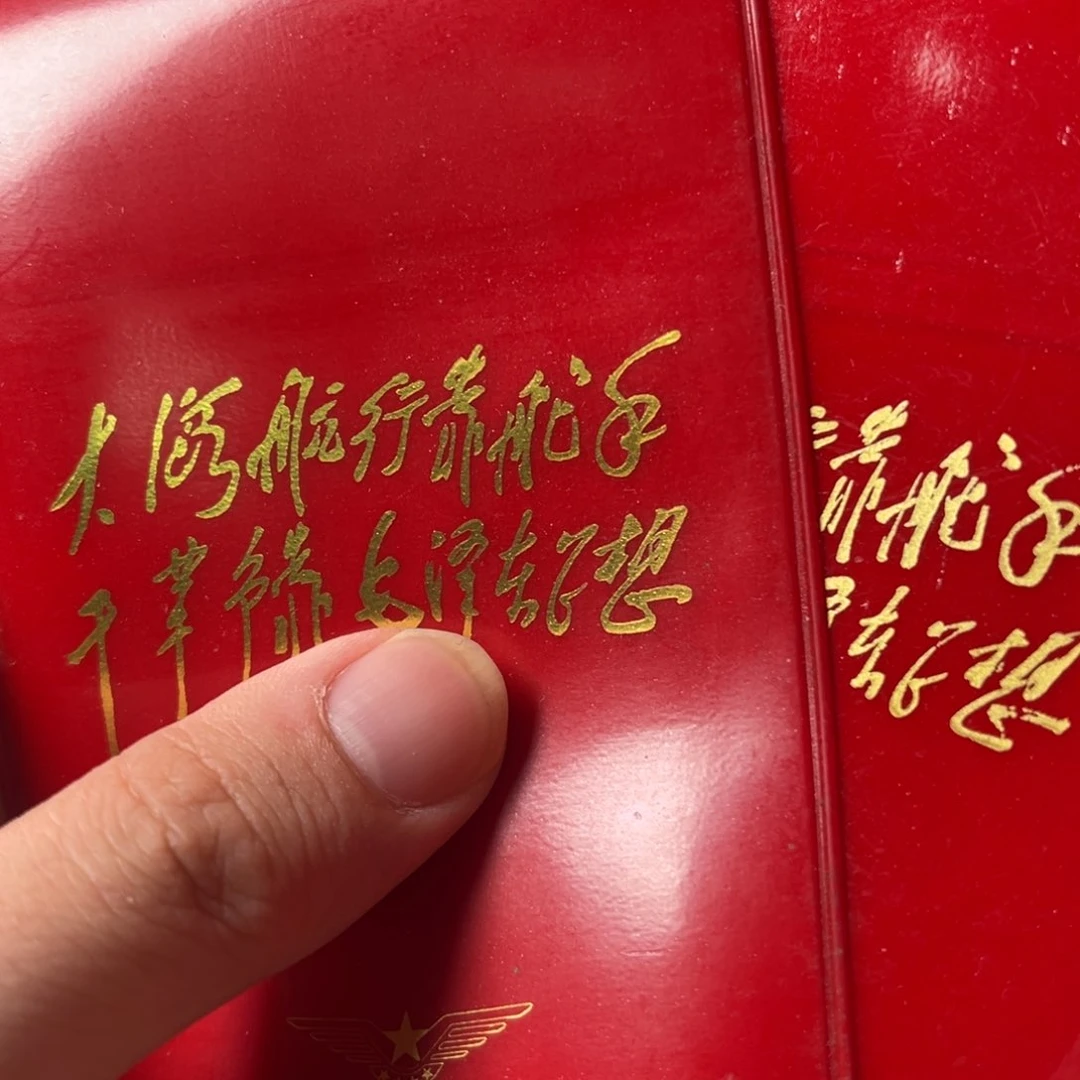 大海航行靠舵手
干革命靠毛泽东思想
靠舵手
东思想